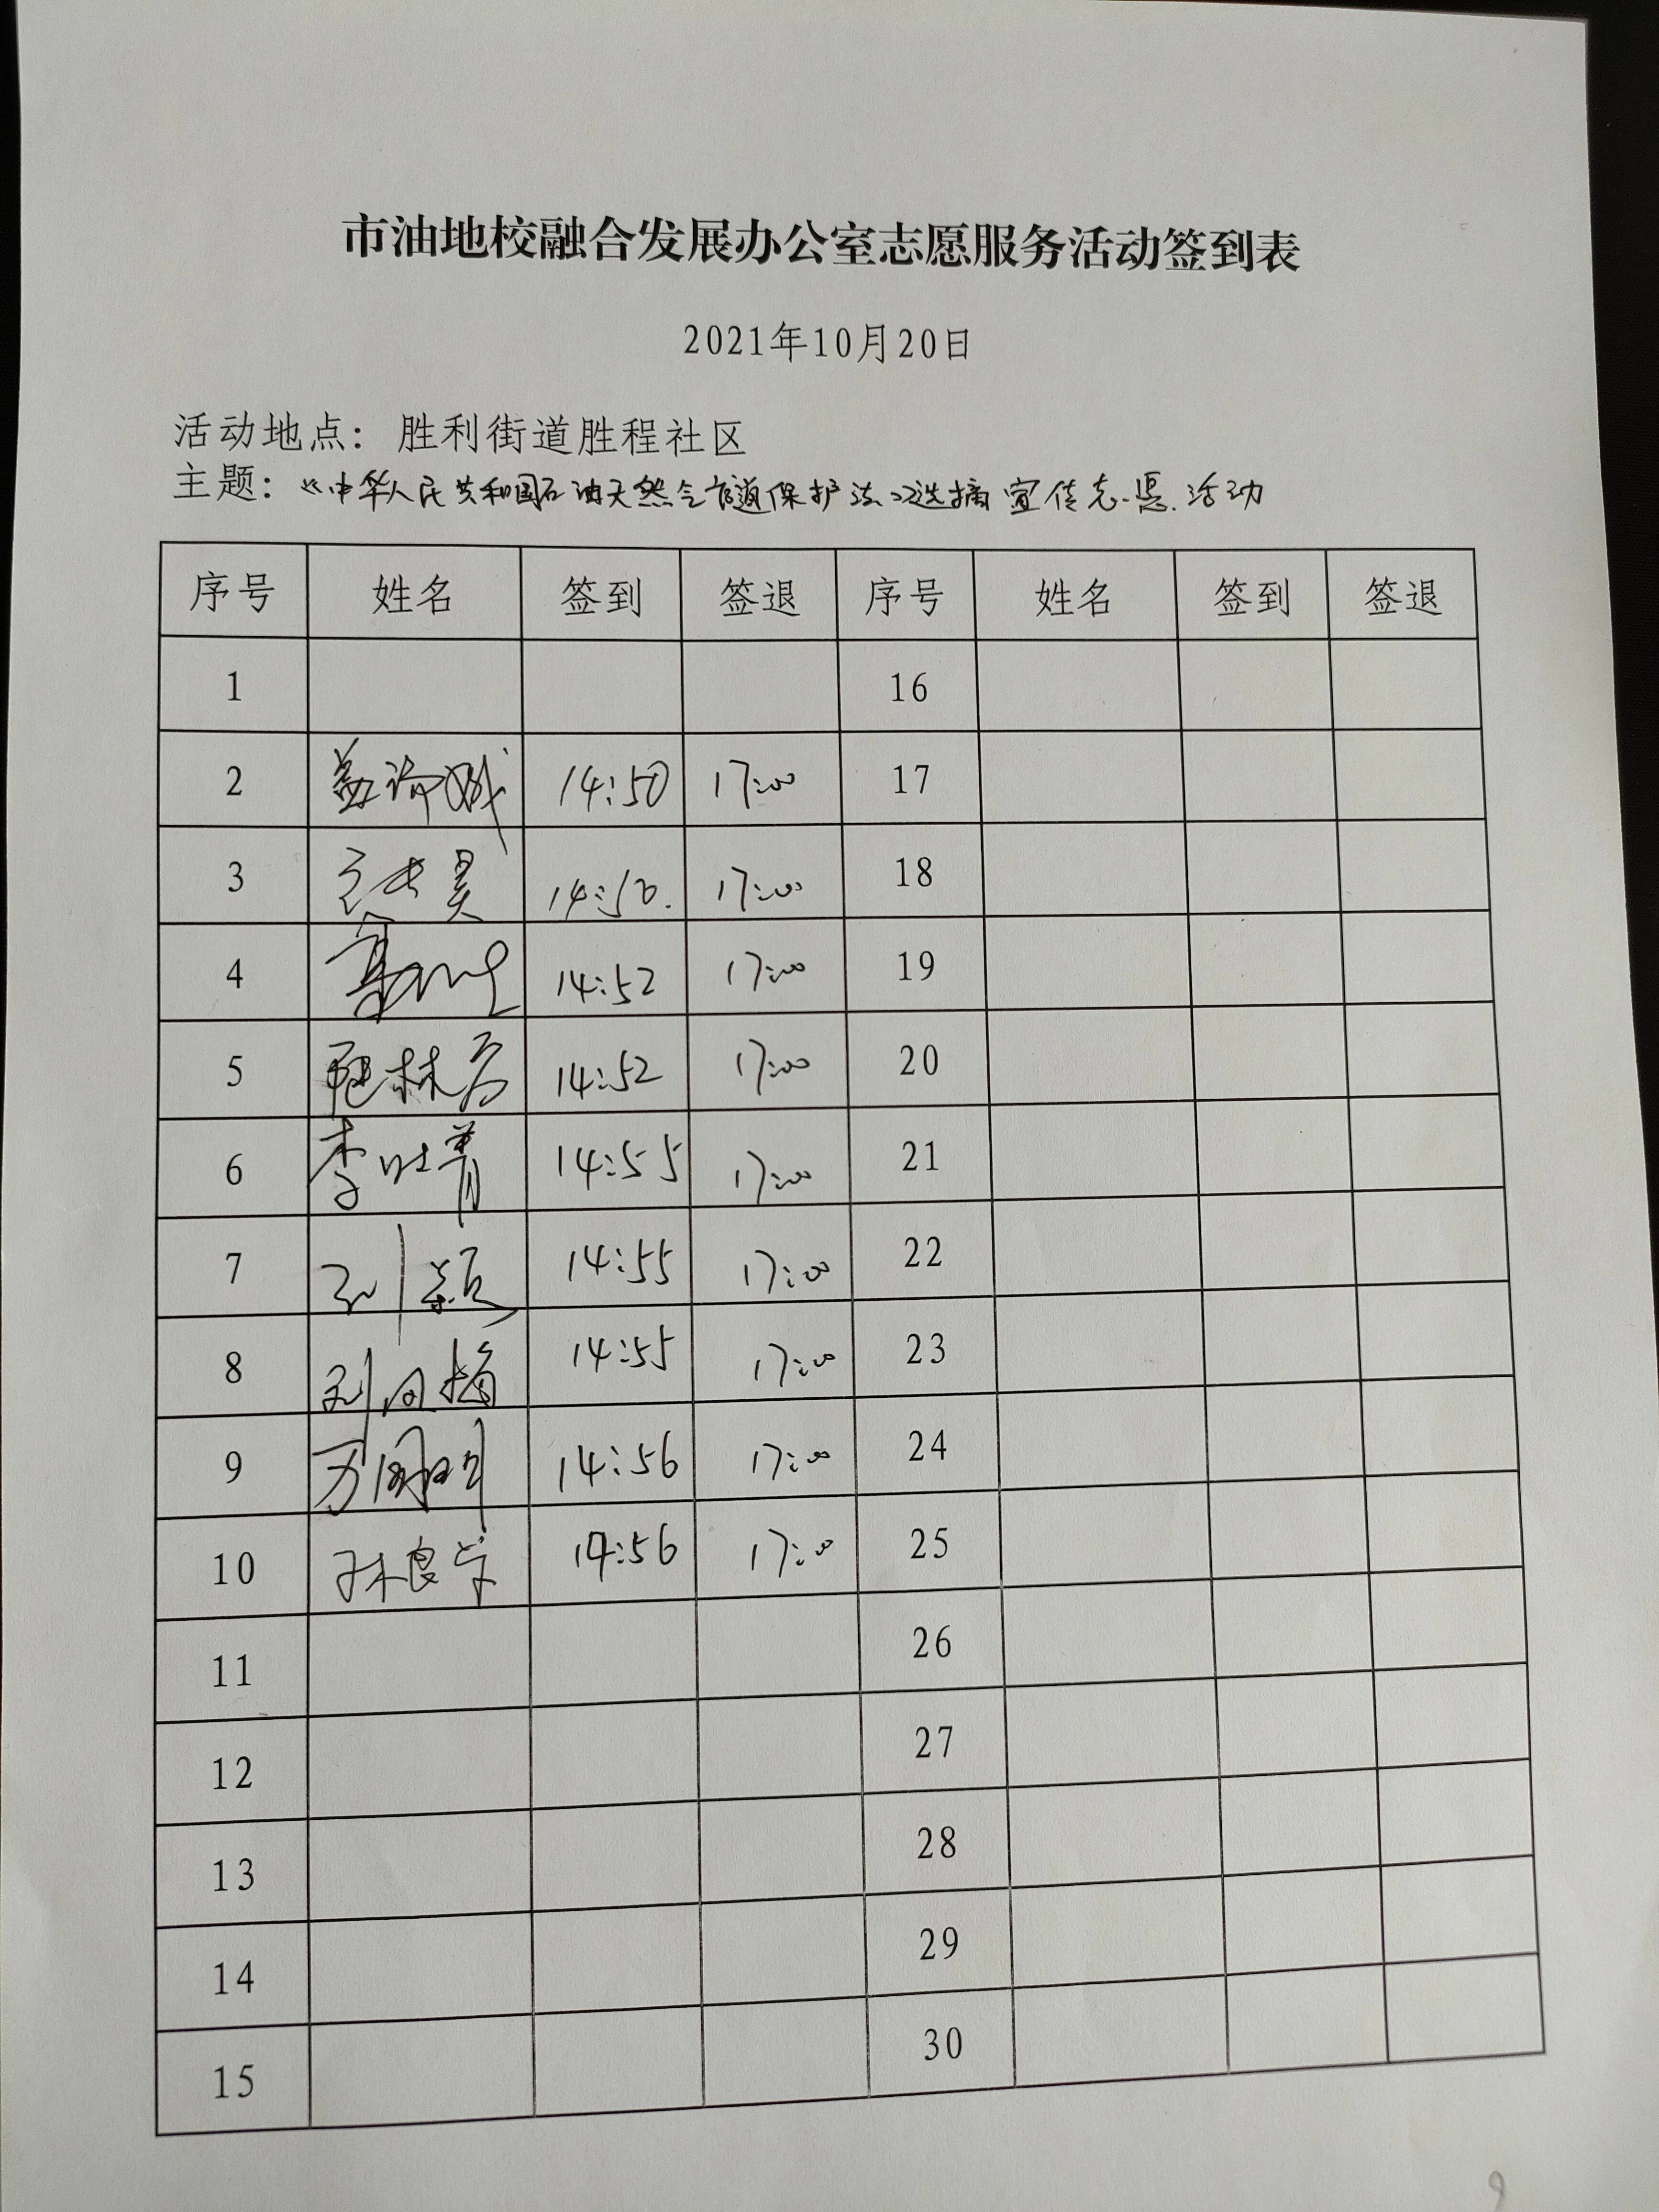 市油地校融合发展办公室志愿服务活动签到表
2021年10月20日
活动地点：胜利街道胜程社区
主题：《中华人民共和国石油天然气管道保护法》选摘宣传志愿活动
序号 姓名 签到 签退 序号 姓名 签到 签退
1 16
2 14:50 17:00 17
3 14:50. 17:00 18
4 14:52 17:00 19
5 14:52 17:00 20
6 李 菁 14:55 17:00 21
7 刘颖 14:55 17:00 22
8 刘 梅 14:55 17:00 23
9 万 明 14:56 17:00 24
10 孙良学 14:56 17:00 25
11 26
12 27
13 28
14 29
15 30